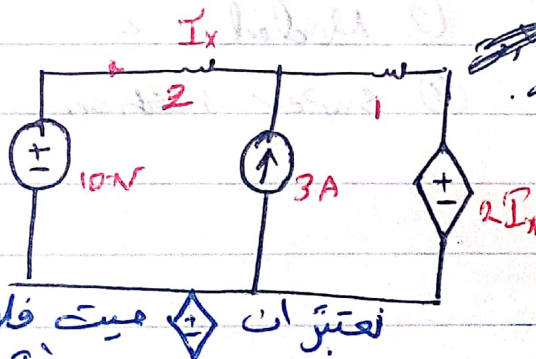 Ix
2
1
10V
3A
2Ix
نعتبر ان ميت